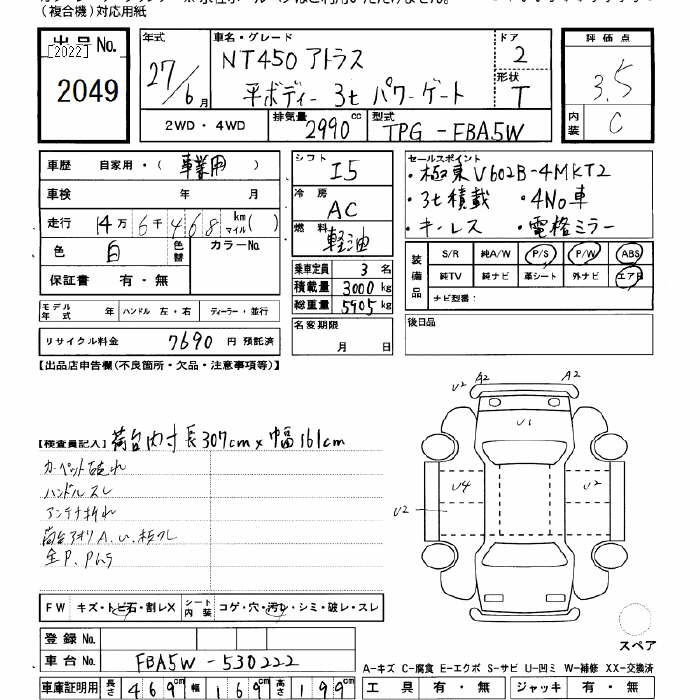 (複合機)対応用紙
出品No.
[2022]
2049
年式
27/6月
車名・グレード
NT450 アトラス
平ボディー 3t パワーゲート
ドア
2
形状
T
評価点
3.5
内装
C
2WD・4WD
排気量
2990 cc
型式
TPG-FBA5W
車歴 自家用・(事業用)
車検 年 月
走行 14万6千468 km マイル( )
色 白 色替 カラーNo.
保証書 有・無
シフト
I5
冷房
AC
燃料
軽油
乗車定員 3 名
積載量 3000 kg
総重量 5905 kg
名変期限
月 日
セールスポイント
・極東V602B-4MKT2
・3t積載 ・4No車
・キーレス ・電格ミラー
装備品
S/R 純A/W P/S P/W ABS
純TV 純ナビ 革シート 外ナビ エアB
ナビ型番:
モデル年式 年 ハンドル 左・右 ディーラー・並行
後日品
リサイクル料金 7690 円 預託済
【出品店申告欄(不良箇所・欠品・注意事項等)】
U2 A2 A2
U1
【検査員記入】荷台内寸 長307cm×幅161cm
カーペット破れ
ハンドルスレ
アンテナ折れ
U4 U2
U2
FW キズ・トビ石・割レX シート内装 コゲ・穴・汚レ・シミ・破レ・スレ
スペア
登録No.
車台No. FBA5W-530222
A-キズ C-腐食 E-エクボ S-サビ U-凹ミ W-補修 XX-交換済
車庫証明用 長さ 469cm 幅 169cm 高さ 199cm
工具 有・無 ジャッキ 有・無